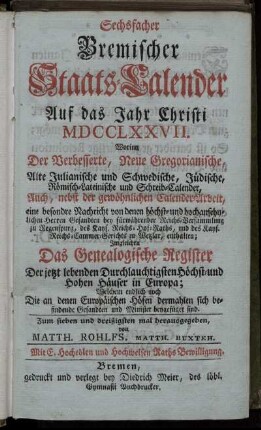 Sechsfacher
Bremischer
Staats-Calender
Auf das Jahr Christi
MDCCLXXVII.
Worinn
Der Verbesserte, Neue Gregorianische,
Alte Julianische und Schwedische, Jüdische,
Römisch-Lateinische und Schreib-Calender,
Auch, nebst der gewöhnlichen Calender-Arbeit,
eine besondre Nachricht von denen höchst- und hochansehn-
lichen Herren Gesandten bey fürwährender Reichs-Versammlung
zu Regenspurg, des Kays. Reichs-Hof-Raths, und des Kays.
Reichs-Cammer-Gerichts zu Wetzlar, enthalten;
Imgleichen
Das Genealogische Register
Der jetzt lebenden Durchlauchtigsten Höchst- und
Hohen Häuser in Europa;
Welchem endlich auch
Die an denen Europäischen Höfen dermahlen sich be-
findende Gesandten und Minister beygefüget sind.
Zum sieben und dreißigsten mal herausgegeben,
von
MATTH. ROHLFS, MATTH. BUXTEH.
Mit E. Hochedlen und Hochweisen Raths Bewilligung.
Bremen,
gedruckt und verlegt bey Diedrich Meier, des löbl.
Gymnasii Buchdrucker.